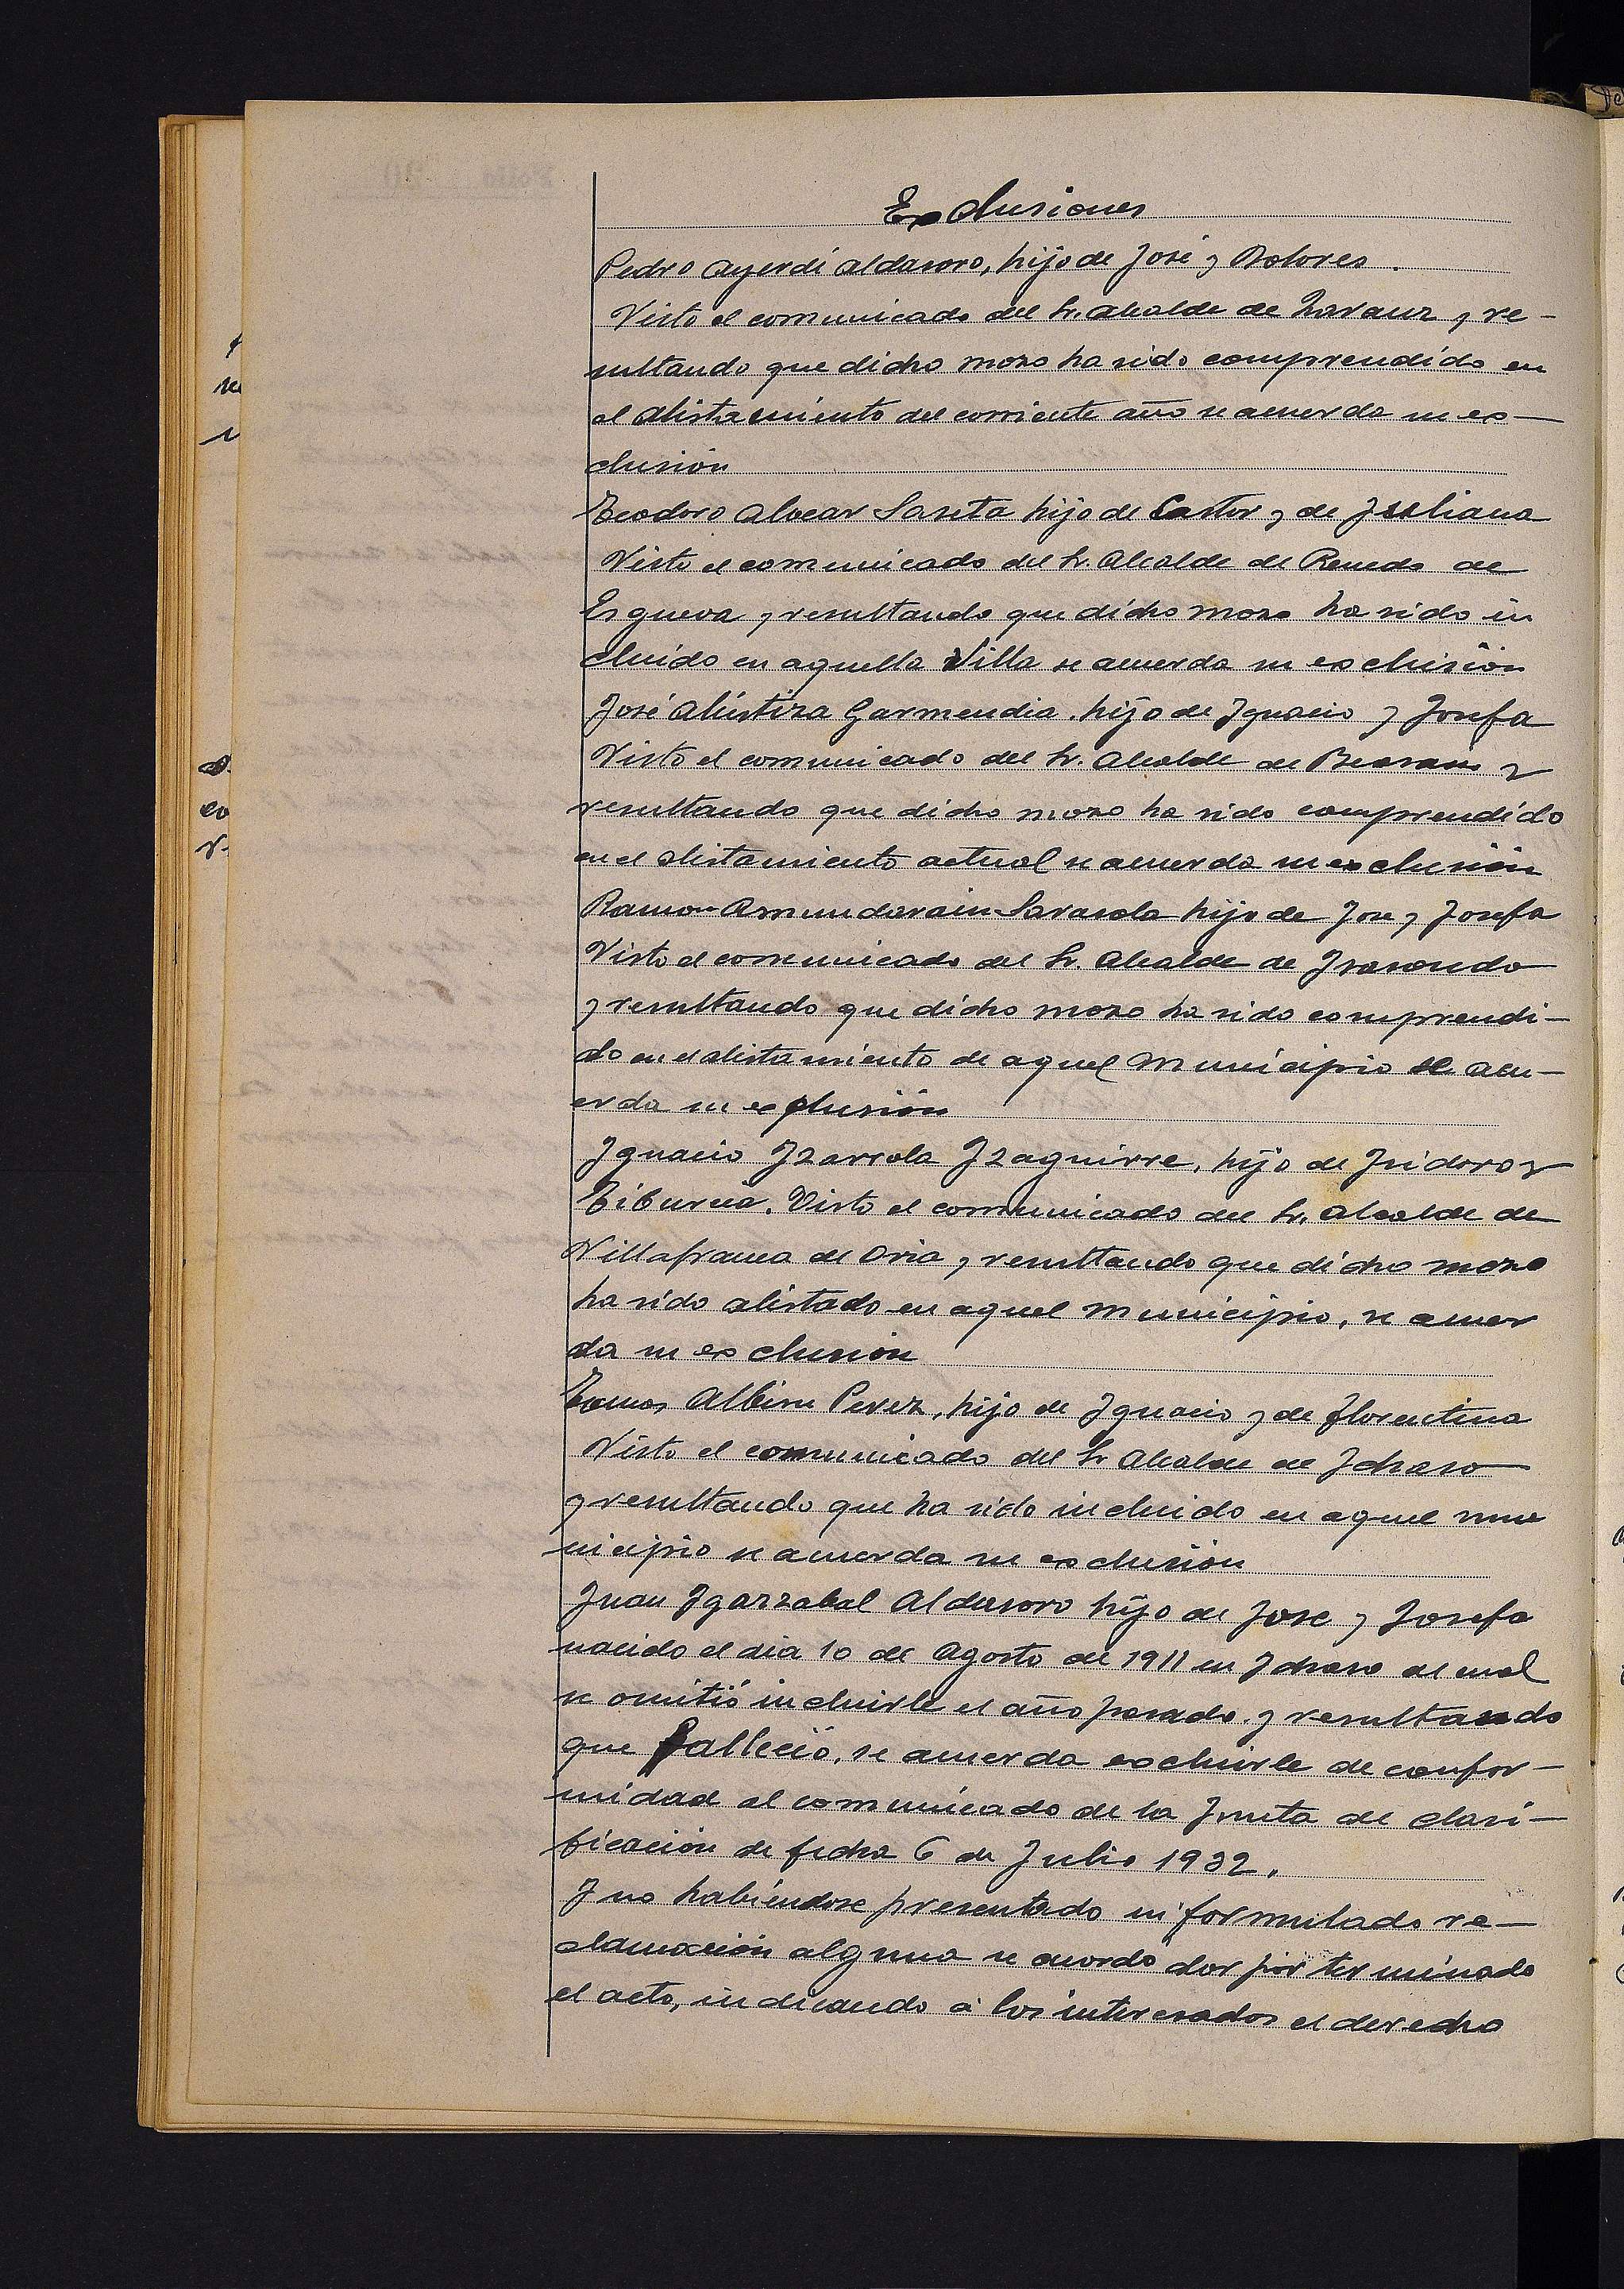 Exclusiones
Pedro Ayerdi Aldasoro, hijo de José y Dolores.
Visto el comunicado del Sr. Alcalde de Zarauz y re-
sultando que dicho mozo ha sido comprendido en
el alistamiento del corriente año se acuerda su ex-
clusión
Teodoro Alvear Saseta hijo de Castor y de Juliana
Visto el comunicado del Sr. Alcalde de Renedo de
Esgueva y resultando que dicho mozo ha sido in
cluido en aquella Villa se acuerda su exclusión
José Alústiza Garmendia. hijo de Ignacio y Josefa
Visto el comunicado del Sr. Alcalde de Beasain y
resultando que dicho mozo ha sido comprendido
en el alistamiento actual se acuerda su exclusión
Ramon Amundarain Sarasola hijo de Jose y Josefa
Visto el comunicado del Sr. Alcalde de Isasondo
y resultando que dicho mozo ha sido comprendi-
do en el alistamiento de aquel Municipio se acu-
erda su exclusión
Ignacio Izarrola Izaguirre, hijo de Isidoro y
Tiburcia. Visto el comunicado del Sr. Alcalde de
Villafranca de Oria y resultando que dicho mozo
ha sido alistado en aquel Municipio, se acuer
da su exclusión
Tomas Albisu Perez, hijo de Ignacio y de Florentina
Visto el comunicado del Sr Alcalde de Ichaso
y resultando que ha sido incluido en aquel mu
nicipio se acuerda su exclusión
Juan Igarzabal Aldasoro hijo de Jose y Josefa
nacido el dia 10 de Agosto de 1911 en Ichaso al cual
se omitió incluirle el año pasado. y resultando
que falleció, se acuerda excluirle de confor-
midad al comunicado de la Junta de clasi-
ficación de fecha 6 de Julio 1932.
Y no habiendose presentado ni formulado re-
clamación alguna se acordo dar por terminado
el acto, indicando á los interesados el derecho